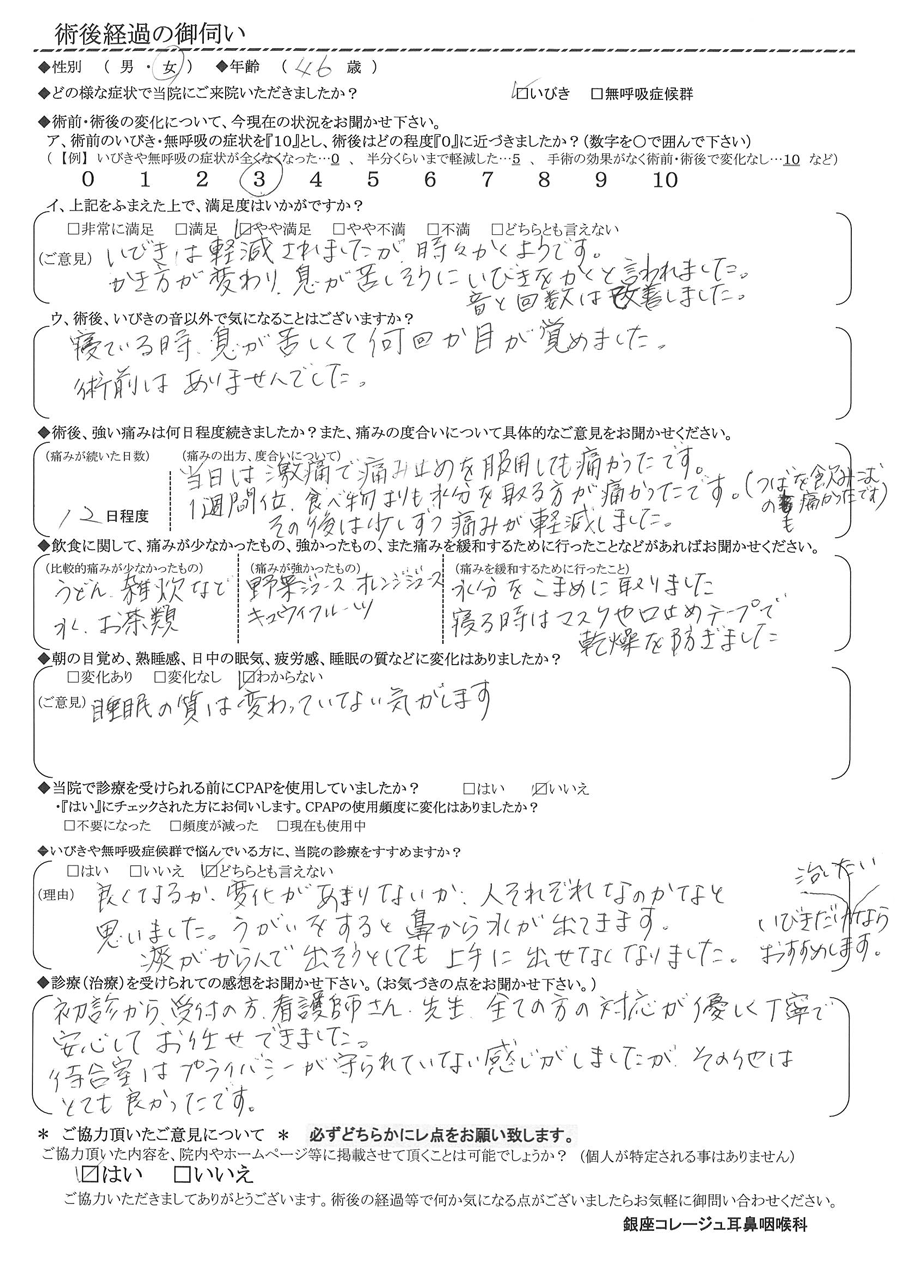 術後経過の御伺い
◆性別 ( 男 ・ 女 ) ◆年齢 ( 46 歳 )
◆どの様な症状で当院にご来院いただきましたか? ☑いびき □無呼吸症候群
◆術前・術後の変化について、今現在の状況をお聞かせ下さい。
ア、術前のいびき・無呼吸の症状を『10』とし、術後はどの程度『0』に近づきましたか?(数字を○で囲んで下さい)
(【例】 いびきや無呼吸の症状が全くなくなった…0 、 半分くらいまで軽減した…5 、 手術の効果がなく術前・術後で変化なし…10 など)
0 1 2 3 4 5 6 7 8 9 10
イ、上記をふまえた上で、満足度はいかがですか?
□非常に満足 □満足 ☑やや満足 □やや不満 □不満 □どちらとも言えない
(ご意見) いびきは軽減されましたが、時々かくようです。
かき方が変わり、息が苦しそうにいびきをかくと言われました。
音と回数は改善しました。
ウ、術後、いびきの音以外で気になることはございますか?
寝ている時、息が苦しくて何回か目が覚めました。
術前はありませんでした。
◆術後、強い痛みは何日程度続きましたか?また、痛みの度合いについて具体的なご意見をお聞かせください。
(痛みが続いた日数) (痛みの出方、度合いについて)
当日は激痛で痛み止めを服用しても痛かったです。
1週間位、食べ物よりも水分を取る方が痛かったです。(つばを飲みこむ
のも痛かったです)
12 日程度 その後は少しずつ痛みが軽減しました。
◆飲食に関して、痛みが少なかったもの、強かったもの、また痛みを緩和するために行ったことなどがあればお聞かせください。
(比較的痛みが少なかったもの) (痛みが強かったもの) (痛みを緩和するために行ったこと)
うどん、雑炊など 野菜ジュース オレンジジュース 水分をこまめに取りました
水、お茶類 キュウイフルーツ 寝る時はマスクや口止めテープで
乾燥を防ぎました
◆朝の目覚め、熟睡感、日中の眠気、疲労感、睡眠の質などに変化はありましたか?
□変化あり □変化なし ☑わからない
(ご意見) 睡眠の質は変わっていない気がします
◆当院で診療を受けられる前にCPAPを使用していましたか? □はい ☑いいえ
・『はい』にチェックされた方にお伺いします。CPAPの使用頻度に変化はありましたか?
□不要になった □頻度が減った □現在も使用中
◆いびきや無呼吸症候群で悩んでいる方に、当院の診療をすすめますか?
□はい □いいえ ☑どちらとも言えない
(理由) 良くなるか、変化があまりないか、人それぞれなのかなと
思いました。うがいをすると鼻から水が出てきます。
痰がからんで出そうとしても上手に出せなくなりました。
治したい
いびきだけなら
おすすめします。
◆診療(治療)を受けられての感想をお聞かせ下さい。(お気づきの点をお聞かせ下さい。)
初診から、受付の方、看護師さん、先生、全ての方の対応が優しく丁寧で
安心してお任せできました。
待合室はプライバシーが守られていない感じがしましたが、その他は
とても良かったです。
* ご協力頂いたご意見について * 必ずどちらかにレ点をお願い致します。
ご協力頂いた内容を、院内やホームページ等に掲載させて頂くことは可能でしょうか? (個人が特定される事はありません)
☑はい □いいえ
ご協力いただきましてありがとうございます。術後の経過等で何か気になる点がございましたらお気軽に御問い合わせください。
銀座コレージュ耳鼻咽喉科